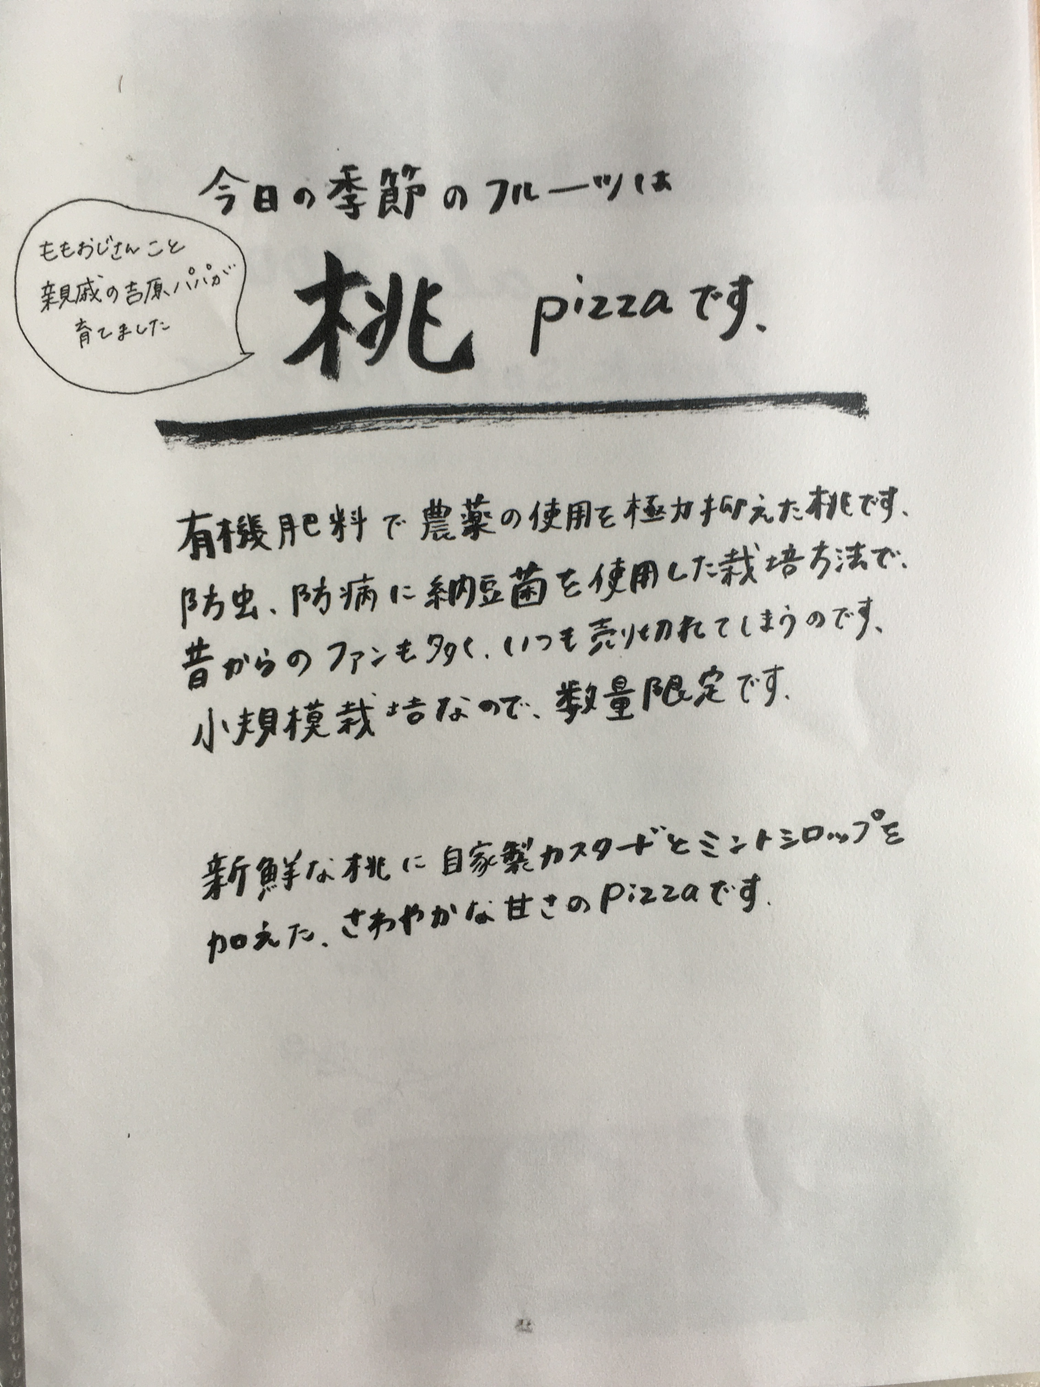 今日の季節のフルーツは
ももおじさんこと
親戚の吉原パパが
育てました
桃 pizzaです、
有機肥料で農薬の使用を極力抑えた桃です、
防虫、防病に納豆菌を使用した栽培方法で、
昔からのファンも多く、いつも売り切れてしまうのです、
小規模栽培なので、数量限定です.
新鮮な桃に自家製カスタードとミントシロップを
加えた、さわやかな甘さのpizzaです.